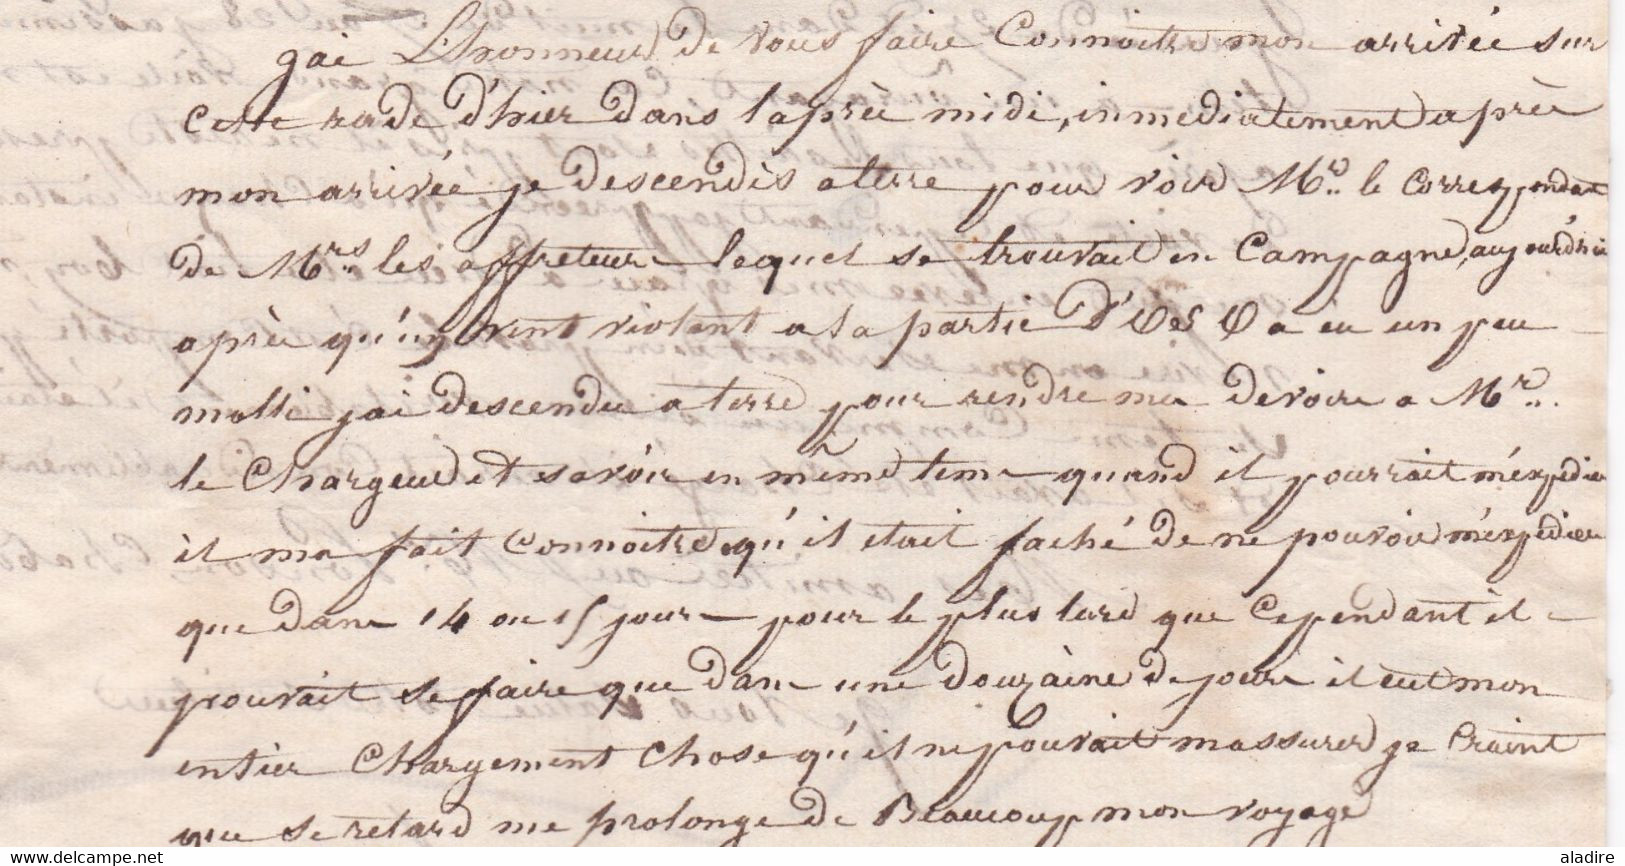 jai Lhonneur de vous faire Connoitre mon arrivée sur
cette rade d'hier dans laprèe midi, inmediatement aprèe
mon arrivée je descendis a terre pour voir Mr. le Correspondant
de Mrs. les affreteur lequel se trouvait en Campagne, aujourd'hui
aprèe qu'un vent violent a la partie d'Oest a eu un peu
molli jai descendu a terre pour rendre me devoire a Mr.
le Chargeur et savoir en même tem quand il pourrait m'expedier
il ma fait Connoitre qu'il etait faché de ne pouvoir m'expedier
que dans 14 ou 15 jour pour le plus tard que Cependant il
pouvait se faire que dans une douzaine de jour il eut mon
entier Chargement Chose qu'il ne pouvait massurer je Craint
que se retard me prolonge de Beaucoup mon voyage
aladire